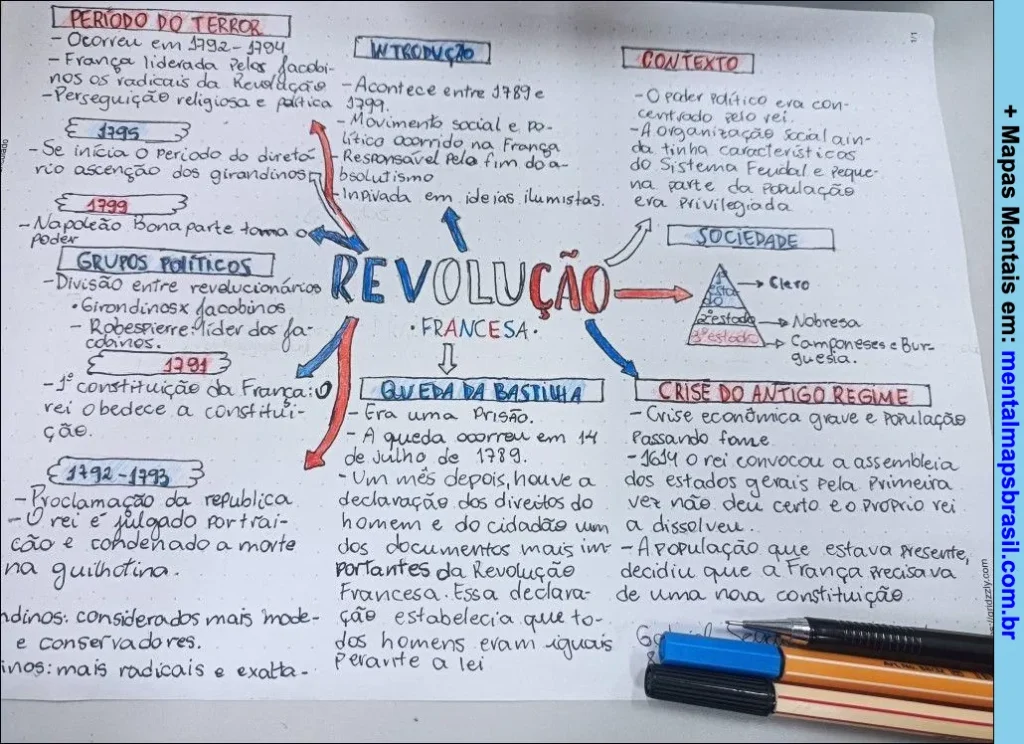 PERÍODO DO TERROR
- Ocorreu em 1792-1794
- França liderada pelos jacobi-
nos os radicais da Revolução
- Perseguição religiosa e política
1795
- Se inicia o período do diretó-
rio ascenção dos girandinos
1799
- Napoleão Bonaparte toma o
poder
GRUPOS POLÍTICOS
- Divisão entre revolucionários
• Girondinos x Jacobinos
- Robespierre: líder dos ja-
cobinos.
1791
- 1ª constituição da França: O
rei obedece a constitui-
ção.
1792-1793
- Proclamação da republica
- O rei é julgado por trai-
ção e condenado a morte
na guilhotina.
ndinos: considerados mais mode-
e conservadores.
inos: mais radicais e exalta-
INTRODUÇÃO
- Acontece entre 1789 e
1799.
- Movimento social e po-
lítico ocorrido na França
- Responsável pelo fim do a-
bsolutismo
- Inpivada em ideias ilumistas.
REVOLUÇÃO
• FRANCESA •
QUEDA DA BASTILHA
- Era uma prisão.
- A queda ocorreu em 14
de julho de 1789.
- Um mês depois, houve a
declaração dos direitos do
homem e do cidadão um
dos documentos mais im
portantes da Revolução
Francesa. Essa declara-
ção estabelecia que to-
dos homens eram iguais
perante a lei
5
CONTEXTO
- O poder político era con-
centrado pelo rei.
- A organização social ain-
da tinha característicos
do Sistema Feudal e peque-
na parte da população
era privilegiada.
SOCIEDADE
1º
esta
do
2º estado
3º estado
Clero
Nobresa
Camponeses e Bur-
guesia.
CRISE DO ANTIGO REGIME
- Crise econômica grave e população
passando fome
- 1614 o rei convocou a assembleia
dos estados gerais pela primeira
vez não deu certo e o proprio rei
a dissolveu.
- A população que estava presente,
decidiu que a França precisava
de uma nova constituição.
+ Mapas Mentais em: mentalmapsbrasil.com.br